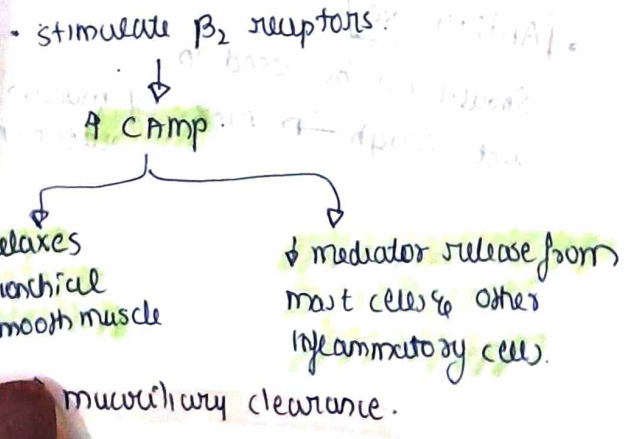 • stimulate β₂ receptors.
↑ CAMP.
elaxes
onchial
mooth muscle
↓ mediator release from
mast cells & other
inflammatory cells.
mucociliary clearance.